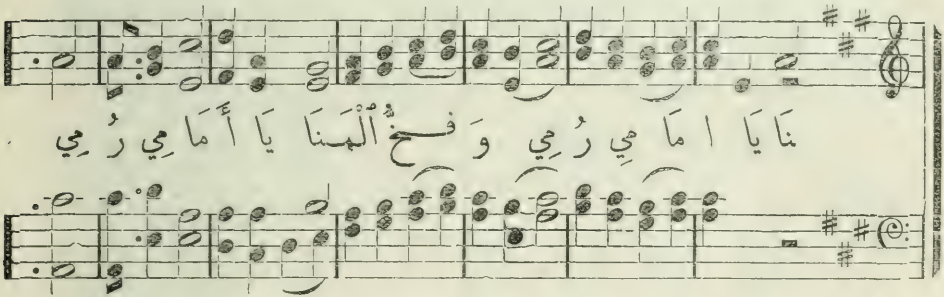 نَا يَا ا مَا مِي رُ مِي وَ فَـخْـٱلْهَـنَا يَا أَ مَا مِي رُ مِي